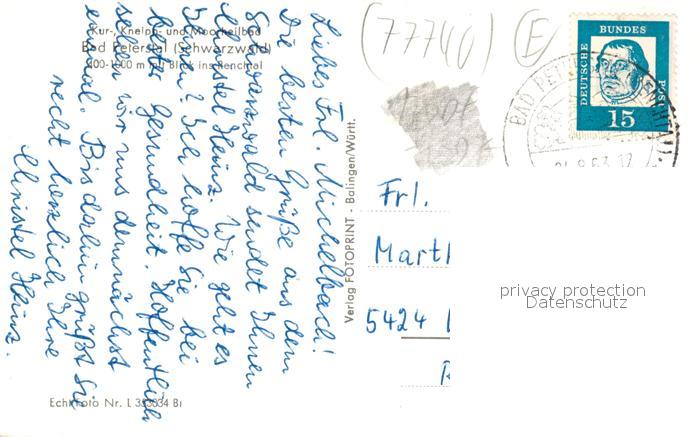 Kur-, Kneipp- und Moorheilbad
Bad Peterstal (Schwarzwald)
400-1000 m mit Blick ins Renchtal
Liebes Frl. Michelbach!
Die besten Grüße aus dem
Schwarzwald sendet Ihnen
Christel Heinz. Wie geht es
Ihnen? Ich hoffe Sie bei
bester Gesundheit. Hoffentlich
sehen wir uns demnächst
einmal. Bis dahin grüßt Sie
recht herzlich Ihre
Christel Heinz.
Echt Foto Nr. L 353034 Bi
Verlag FOTOPRINT - Balingen/Württ.
(77740) (E)
DEUTSCHE BUNDESPOST
15
BAD PETERSTAL
Frl.
Marth
5424
privacy protection
Datenschutz